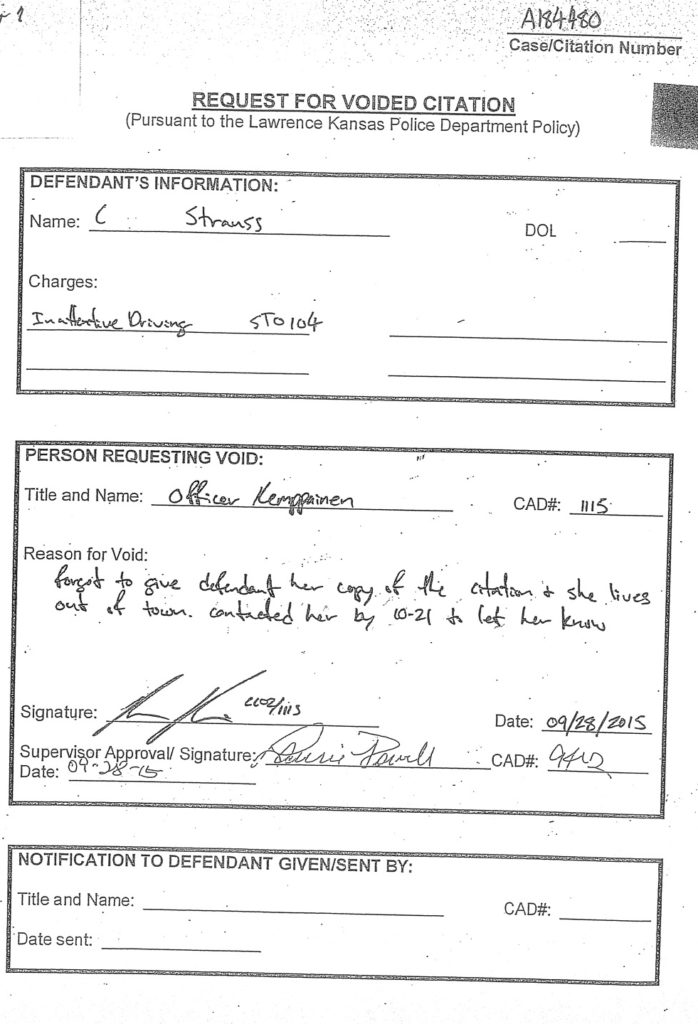 A184480
Case/Citation Number
REQUEST FOR VOIDED CITATION
(Pursuant to the Lawrence Kansas Police Department Policy)
DEFENDANT'S INFORMATION:
Name: C Strauss DOL
Charges:
Inattentive Driving STO104
PERSON REQUESTING VOID:
Title and Name: Officer Kemppainen CAD#: 1115
Reason for Void:
forgot to give defendant her copy of the citation & she lives
out of town. contacted her by 10-21 to let her know
Signature: Date: 09/28/2015
Supervisor Approval/ Signature: Powell CAD#:
Date: 09-28-15
NOTIFICATION TO DEFENDANT GIVEN/SENT BY:
Title and Name: CAD#:
Date sent: